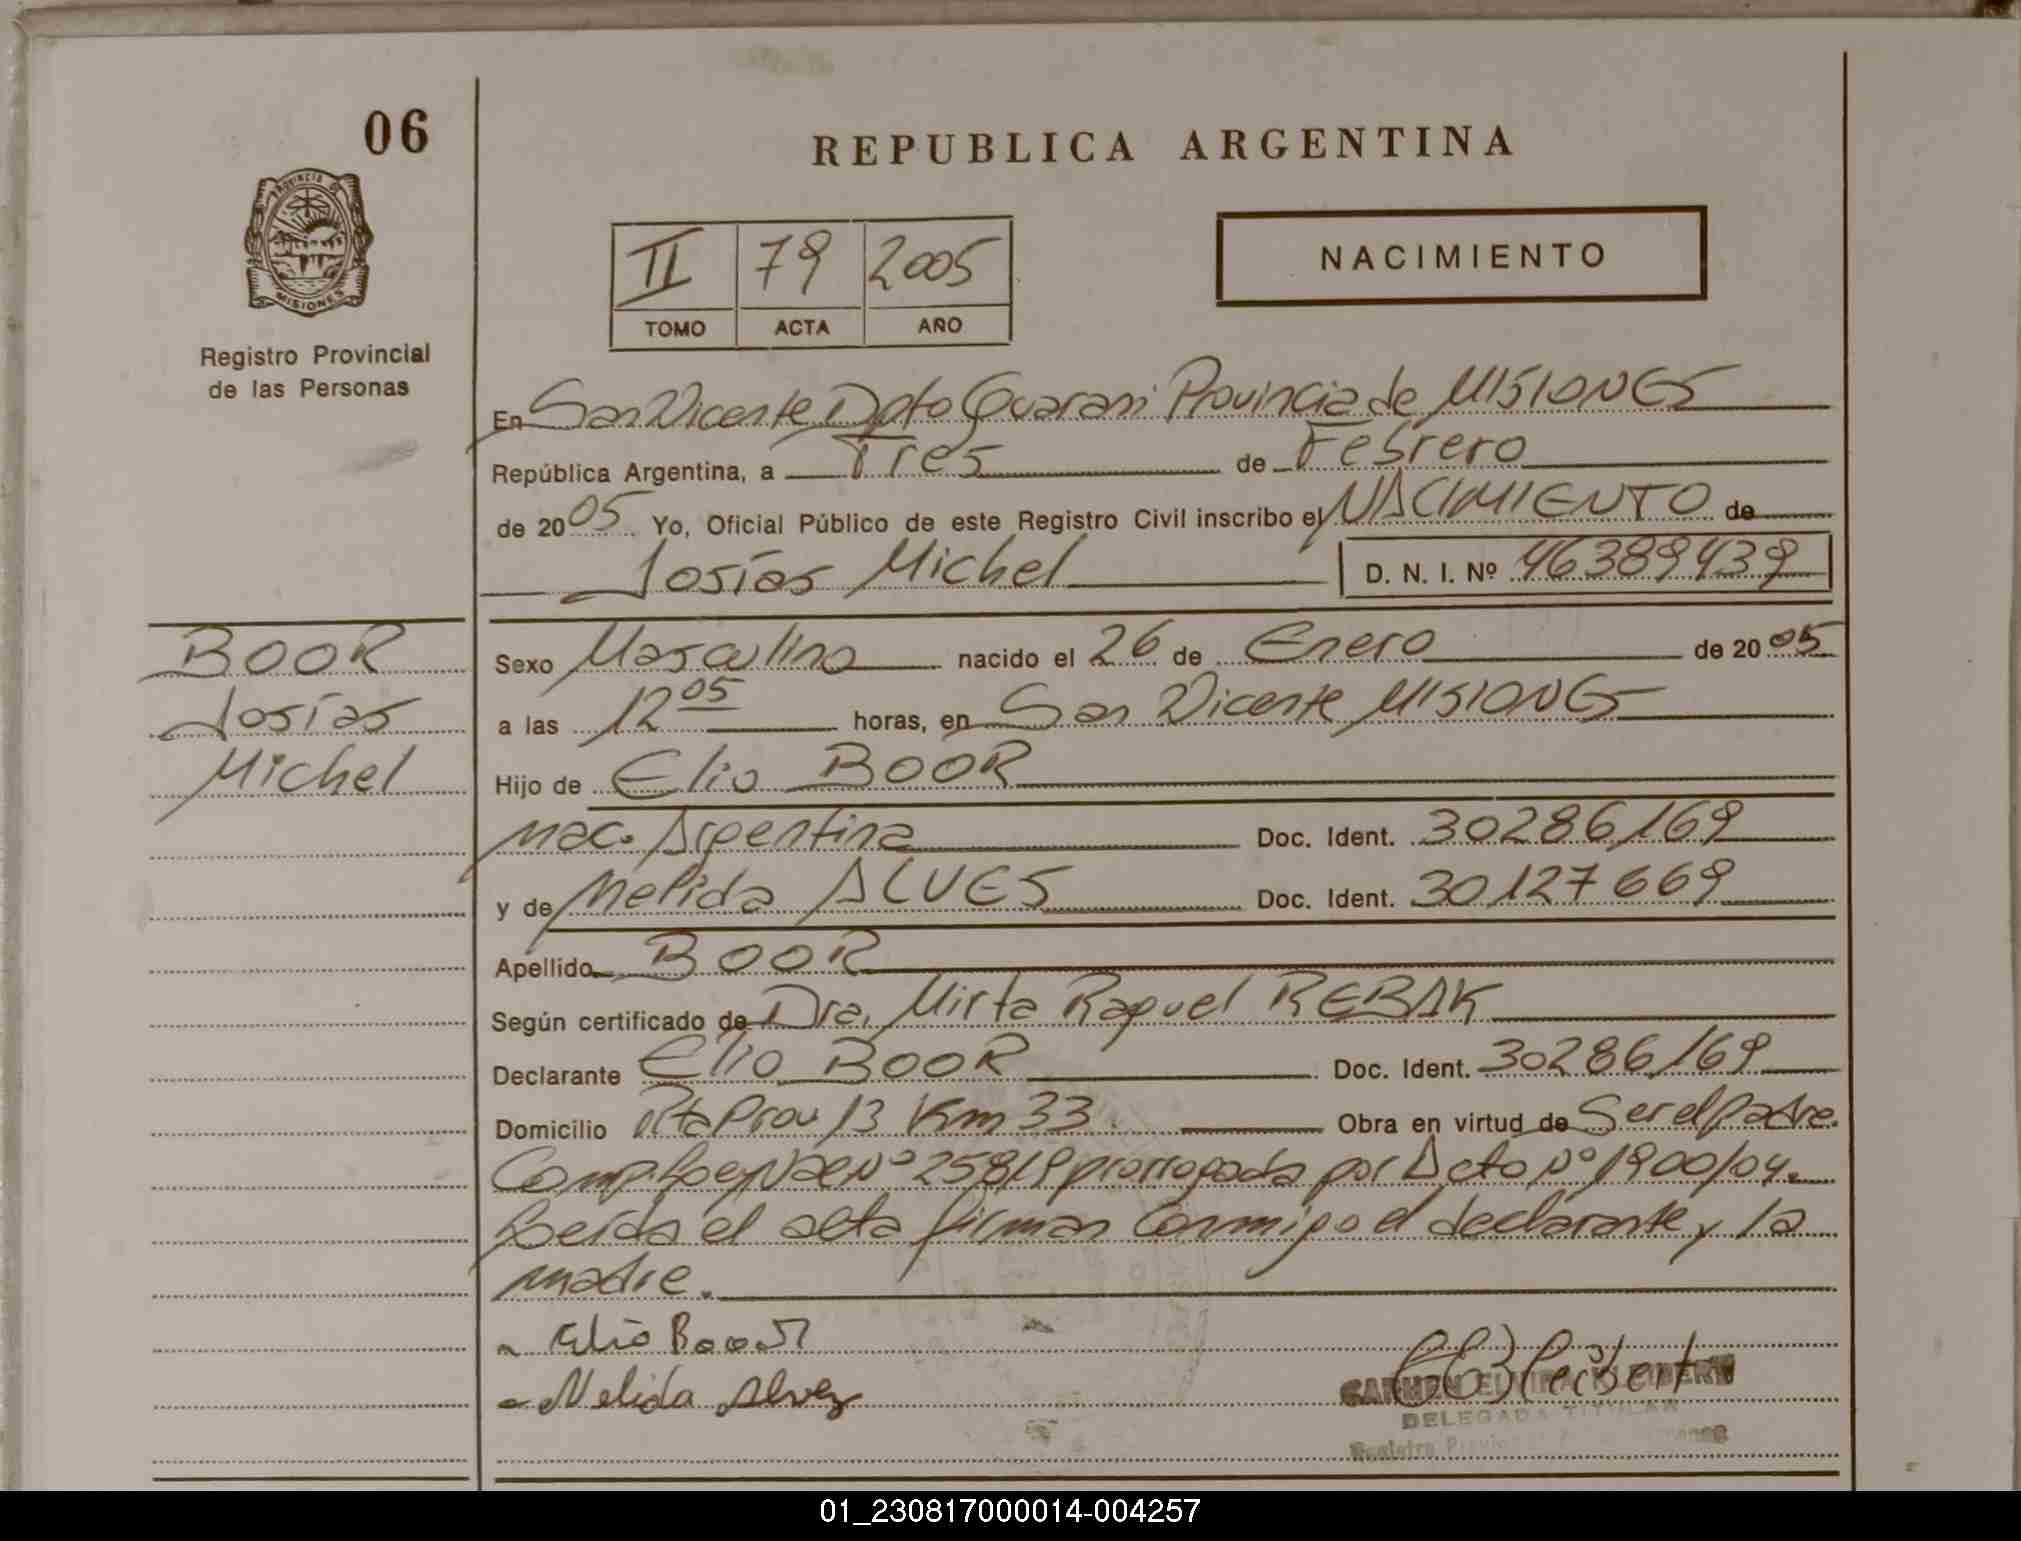 06
REPUBLICA ARGENTINA
PROVINCIA DE
MISIONES
II 79 2005
TOMO ACTA AÑO
NACIMIENTO
Registro Provincial
de las Personas
En San Vicente Dpto Guarani Provincia de MISIONES
República Argentina, a Tres de Febrero
de 2005 Yo, Oficial Público de este Registro Civil inscribo el NACIMIENTO de
Josías Michel D. N. I. Nº 46389439
BOOR
Josías
Michel
Sexo Masculino nacido el 26 de Enero de 2005
a las 12 05 horas, en San Vicente MISIONES
Hijo de Elio BOOR
nac. Argentina Doc. Ident. 30286169
y de Nelida ALVES Doc. Ident. 30127669
Apellido BOOR
Según certificado de Dra. Mirta Raquel REBAK
Declarante Elio BOOR Doc. Ident. 30286169
Domicilio Rta Prov 13 Km 33. Obra en virtud de Ser el Padre.
Nº 25819 prorrogada por Dcto Nº 1900/04.
Leída el acta firman conmigo el declarante y la
madre.
Elio Boor
Nelida Alvez
CARMEN ELVIRA
DELEGADA TITULAR
Registro
01_230817000014-004257